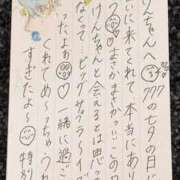 んちゃんへ 7/7の七夕の日に
いに来てくれて本当にあり
う まさかまさか
けんちゃんと会えるとは思っ
なくって ビックサプラーイ
ったよぉ 一緒に過ご
くれて めーっちゃうれ
すぎたよ〜 特別